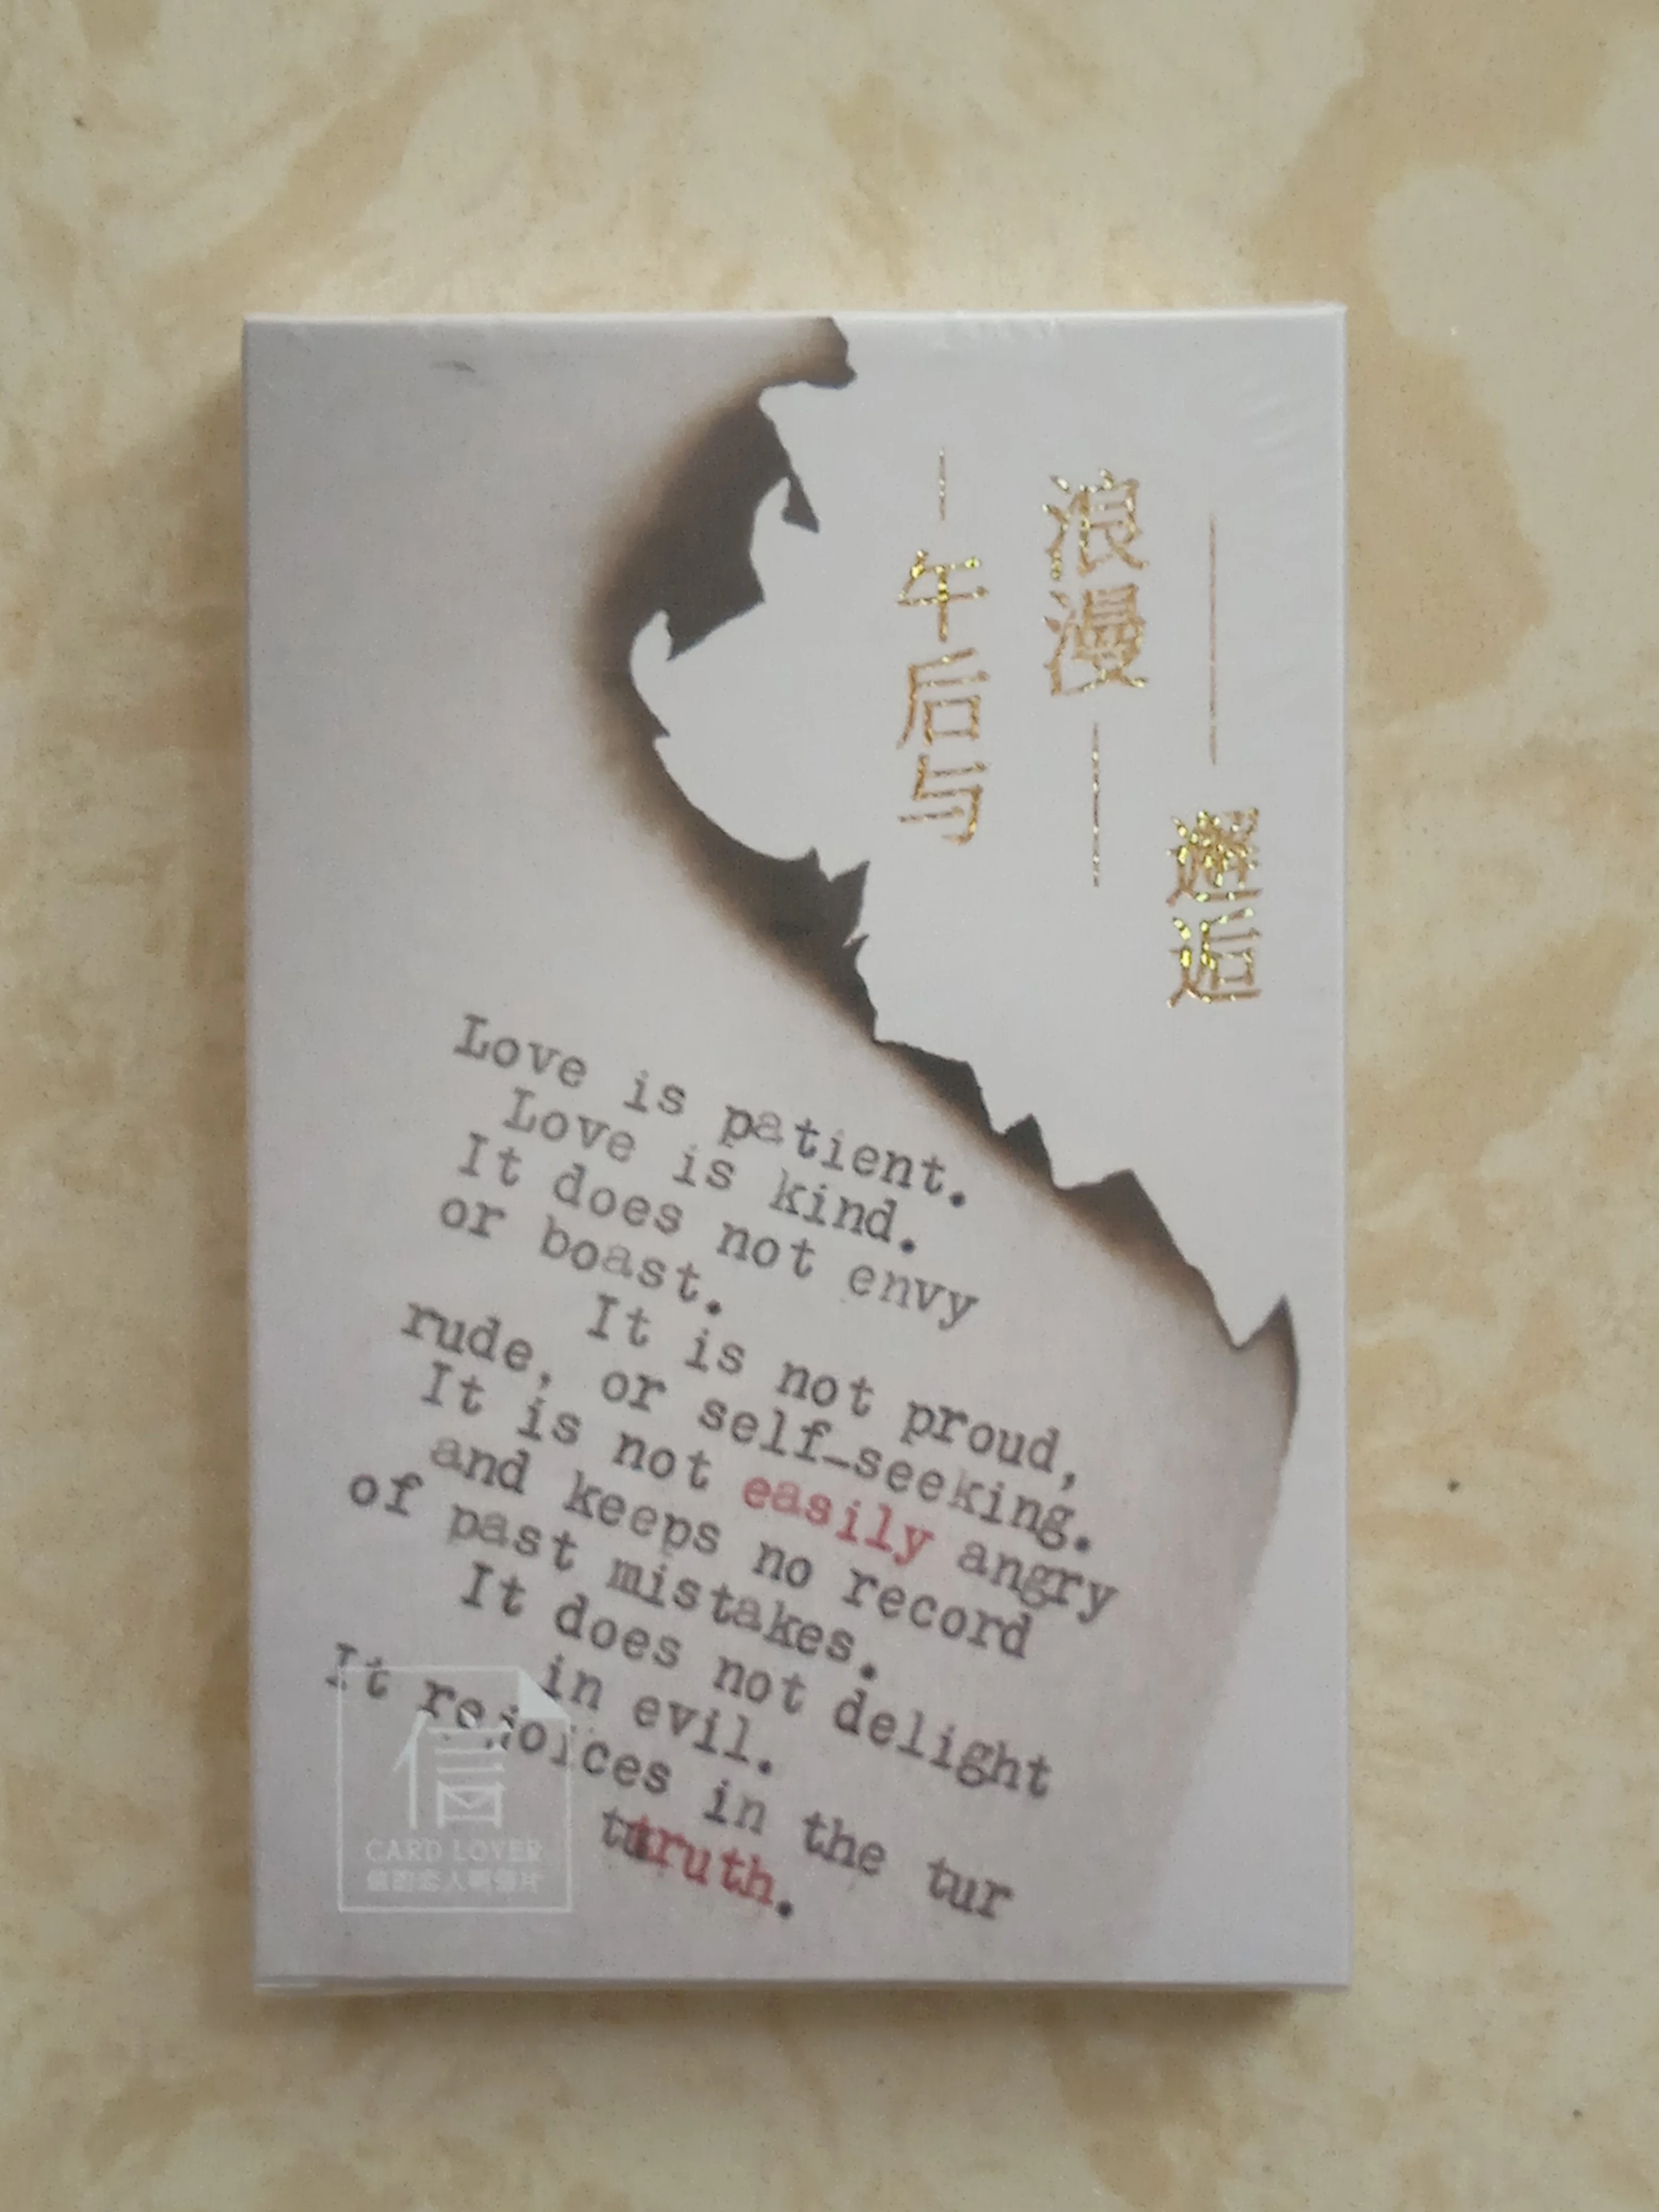 午后与
浪漫
邂逅
Love is patient.
Love is kind.
It does not envy
or boast.
It is not proud,
rude, or self-seeking.
It is not easily angry
and keeps no record
of past mistakes.
It does not delight
in evil.
It rejoices in the tur
truth.
信
CARD LOVER